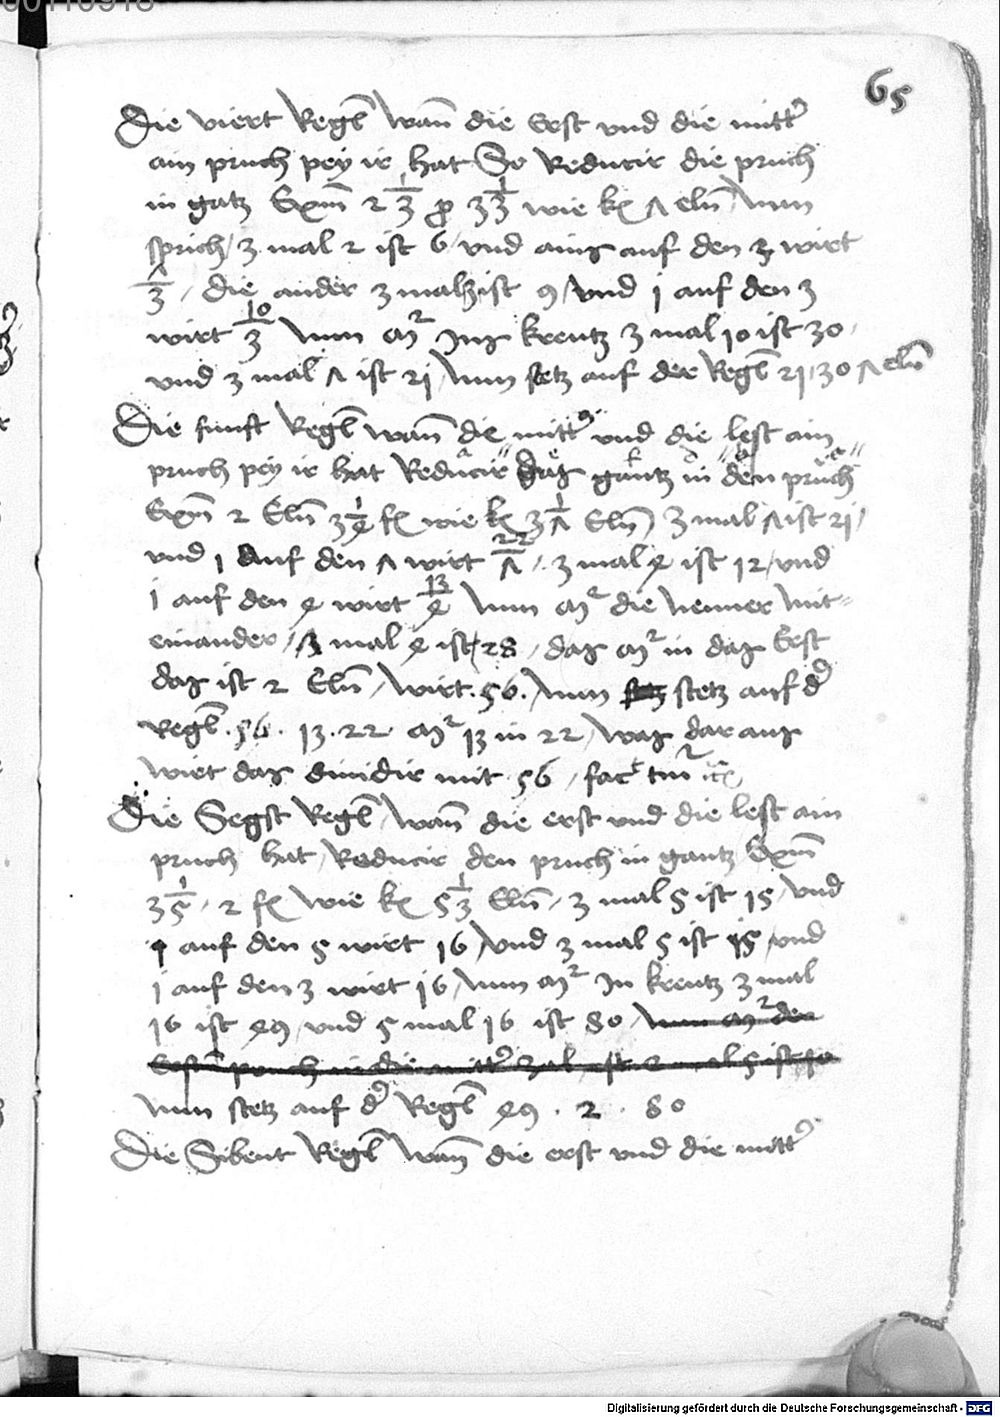 65
Die viert Regl wan̄ die Erst vnd die mitt'
ain pruch pey ir hat So Reducir die pruch
in gatz Exm̄ 2 1/3 ꝓ 3 1/3 wie 7 eln̄ Nun
sprich / 3 mal 2 ist 6 / vnd ains auf den 3 wirt
7/3 / die ander 3 mal 3 ist 9 / vnd 1 auf den 3
wirt 10/3 Nun Ins kreutz 3 mal 10 ist 30
vnd 3 mal 7 ist 21 / Nun setz auf der Regl 21 / 30 7 eln̄
Die funft Regl wan̄ die mitt' vnd die lest ain
pruch pey ir hat Reducir das gantz in den pruch
Exm̄ 2 Eln̄ 3 1/4 wie 3 1/7 Eln̄ / 3 mal 7 ist 21 /
vnd 1 Auf den 7 wirt 22/7 / 3 mal 4 ist 12 / vnd
1 auf den 4 wirt 13/4 Nun die Nenner mit=
einander / mal 4 ist / 28 / das in das Erst
das ist 2 Eln̄ / wirt . 56 . Nun stetz auf d'
Regl . 56 . 13 . 22 13 in 22 / was daraus
wirt das diuidir mit 56 / fac^t
Die Segst Regl / wan̄ die erst vnd die lest ain
pruch hat / Reducir den pruch in gantz Exm̄
3 1/5 . 2 wie 5 1/3 Eln̄ / 3 mal 5 ist 15 / vnd
1 auf den 5 wirt 16 / vnd 3 mal 5 ist 15 / vnd
1 auf den 3 wirt 16 / Nun In kreutz 3 mal
16 ist 49 / vnd 5 mal 16 ist 80 / Nun den
Erst pruch in die mitt' zal ist 2 mal 5 ist 10
Nun stetz auf d' Regl 49 . 2 . 80
Die Sibent Regl wan̄ die erst vnd die mitt'
Digitalisierung gefördert durch die Deutsche Forschungsgemeinschaft - DFG